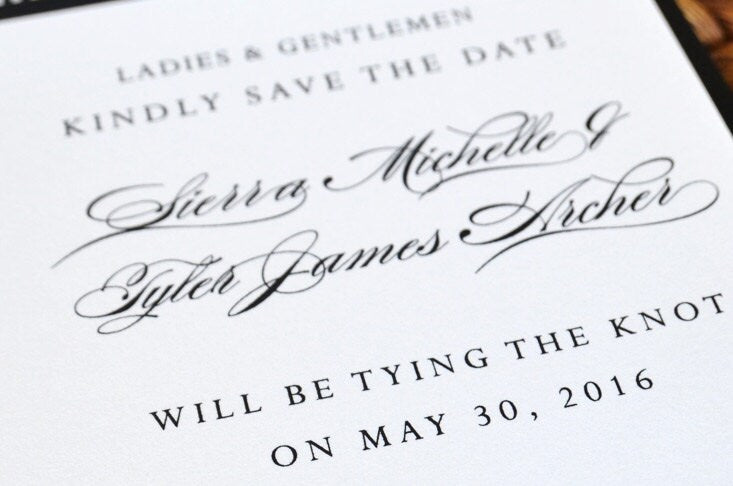 LADIES & GENTLEMEN
KINDLY SAVE THE DATE
Sierra Michelle &
Tyler James Archer
WILL BE TYING THE KNOT
ON MAY 30, 2016